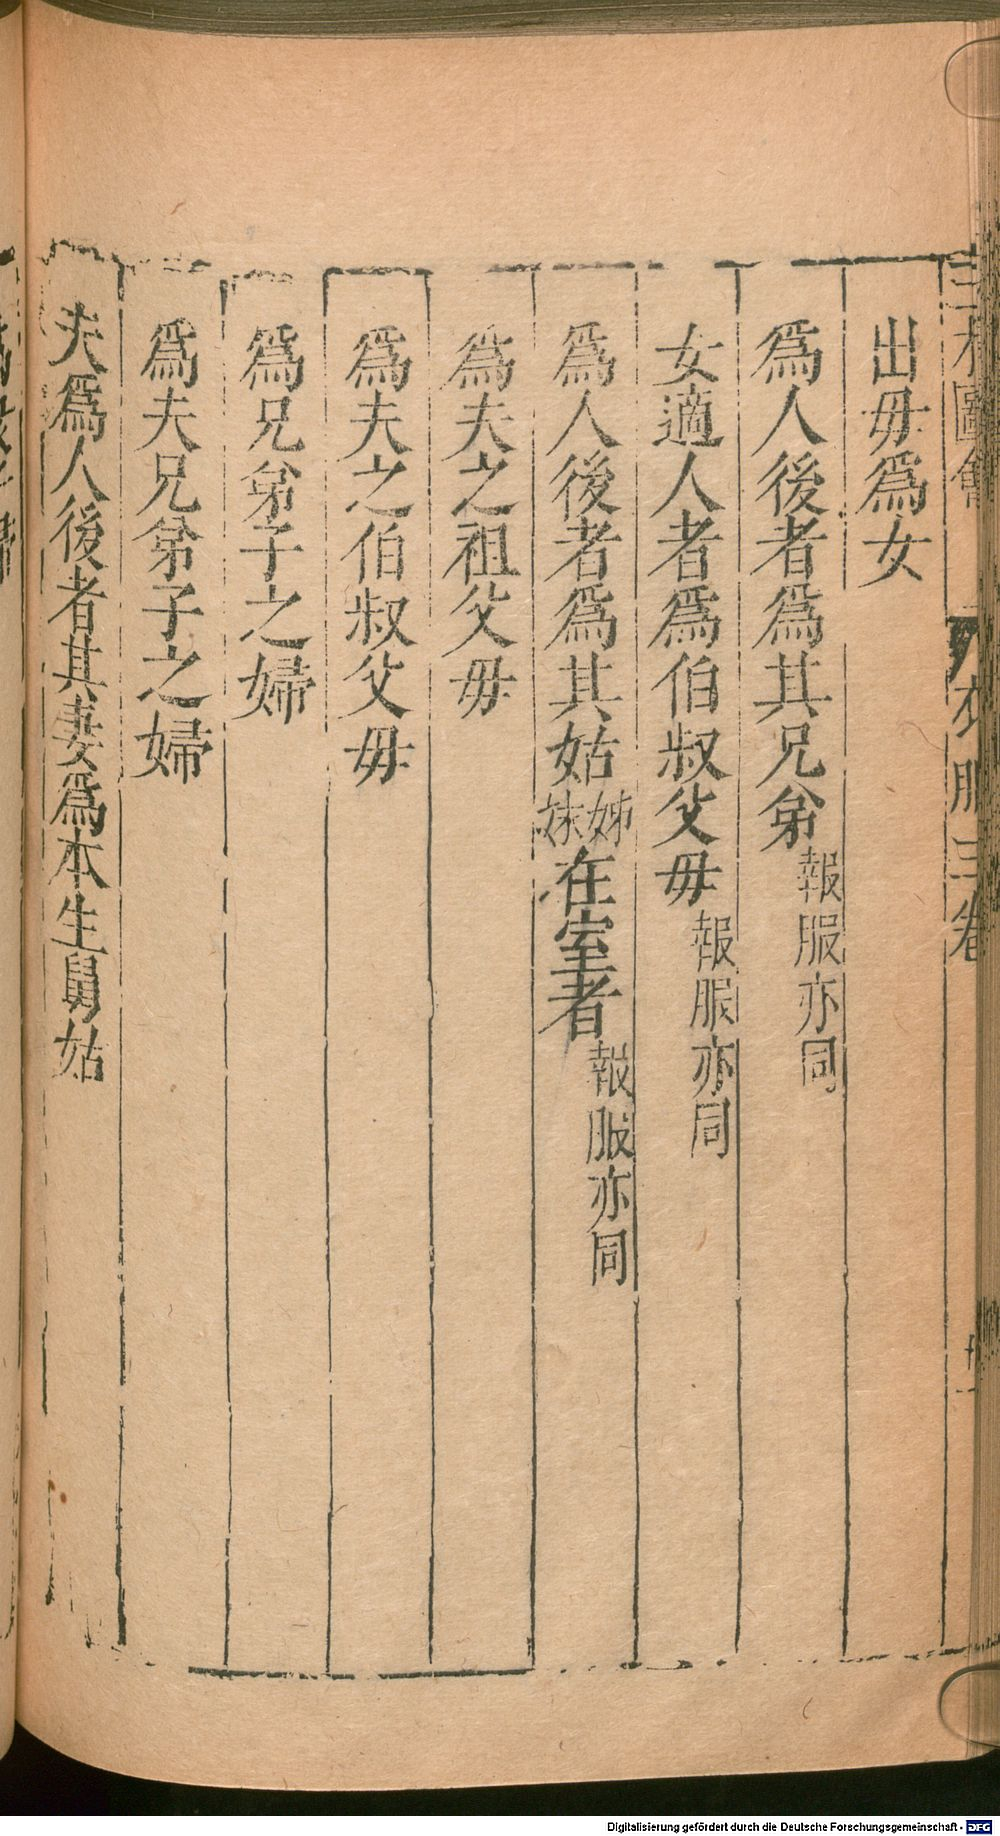 三才圖會 衣服三卷
出母爲女
爲人後者爲其兄弟報服亦同
女適人者爲伯叔父母報服亦同
爲人後者爲其姑姊妹在室者報服亦同
爲夫之祖父母
爲夫之伯叔父母
爲兄弟子之婦
爲夫兄弟子之婦
夫爲人後者其妻爲本生舅姑
Digitalisierung gefördert durch die Deutsche Forschungsgemeinschaft - DFG